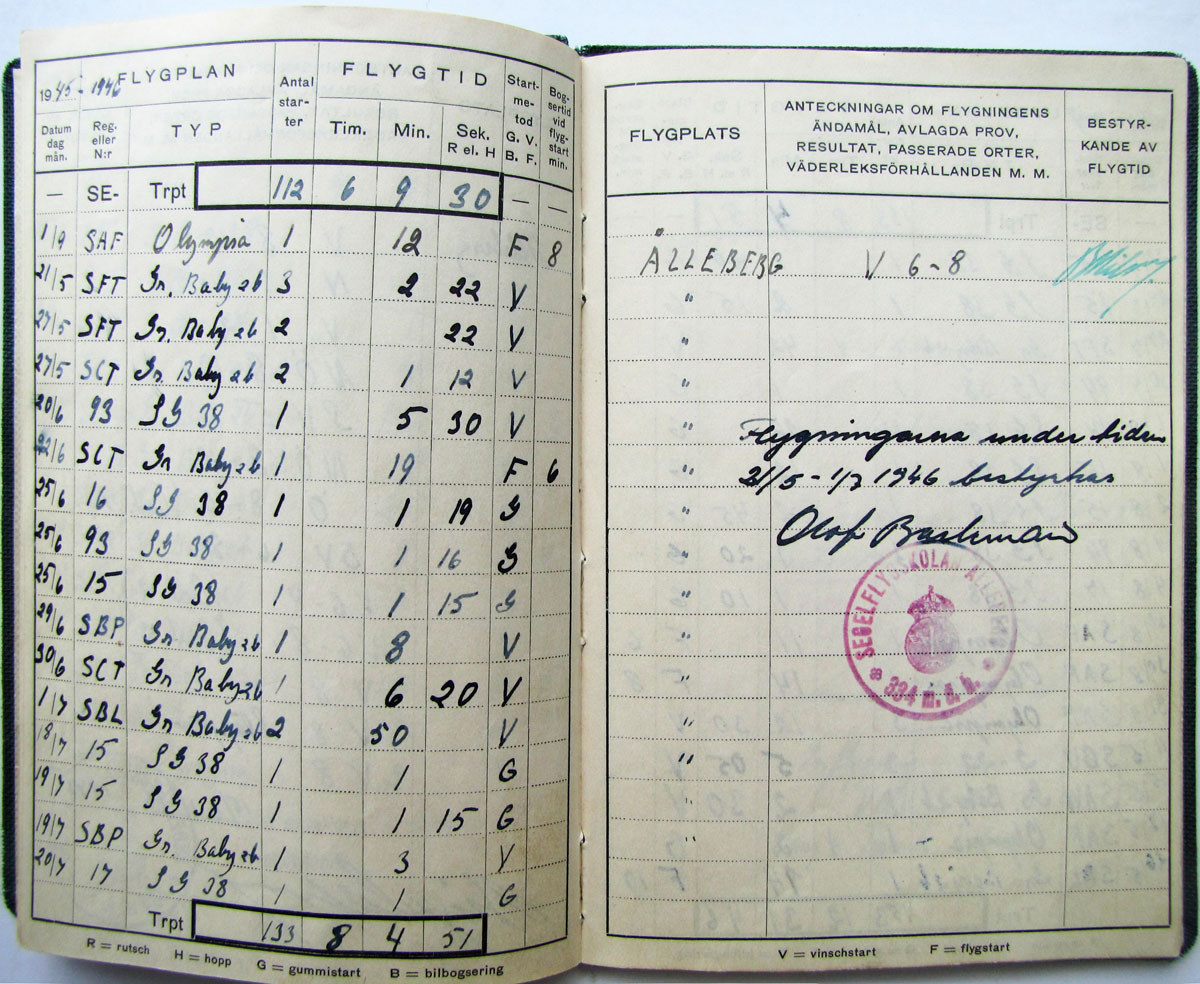 1945-1946 FLYGPLAN Antal starter FLYGTID Startmetod G. V. B. F. Bogsertid vid flygstart min.
Datum dag mån. Reg. eller N:r TYP Tim. Min. Sek. R el. H
— SE- Trpt 112 6 9 30 — —
1/9 SAF Olympia 1 12 F 8
21/5 SFT Gr. Baby 2b 3 2 22 V
27/5 SFT Gr. Baby 2b 2 22 V
27/5 SCT Gr. Baby 2b 2 1 12 V
20/6 93 SG 38 1 5 30 V
22/6 SCT Gr Baby 2b 1 19 F 6
25/6 16 SG 38 1 1 19 G
25/6 93 SG 38 1 1 16 G
25/6 15 SG 38 1 1 15 G
29/6 SBP Gr. Baby 2b 1 8 V
30/6 SCT Gr Baby 2b 1 6 20 V
1/7 SBL Gr. Baby 2b 2 50 V
18/7 15 SG 38 1 1 G
19/7 15 SG 38 1 1 15 G
19/7 SBP Gr. Baby 2b 1 3 V
20/7 17 SG 38 1 1 G
Trpt 133 8 4 51
R = rutsch H = hopp G = gummistart B = bilbogsering
FLYGPLATS ANTECKNINGAR OM FLYGNINGENS ÄNDAMÅL, AVLAGDA PROV, RESULTAT, PASSERADE ORTER, VÄDERLEKSFÖRHÅLLANDEN M. M. BESTYRKANDE AV FLYGTID
ÅLLEBERG V 6-8
"
"
"
" Flygningarna under tiden
" 21/5 - 1/7 1946 bestyrkas
" Olof
"
"
"
"
"
"
"
"
SEGELFLYGSKOLAN ÅLLEBERG
334 m. ö. h.
V = vinschstart F = flygstart